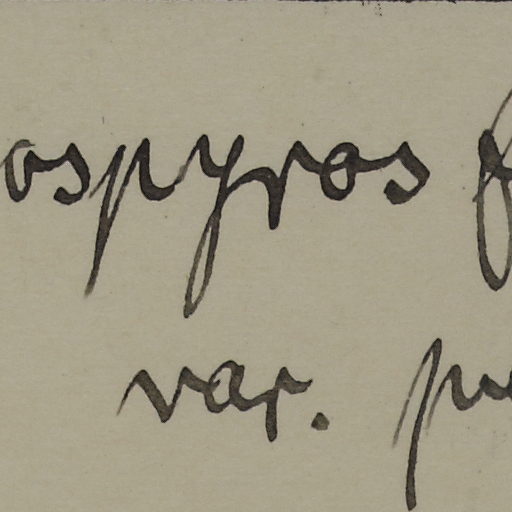 ospyros
var.